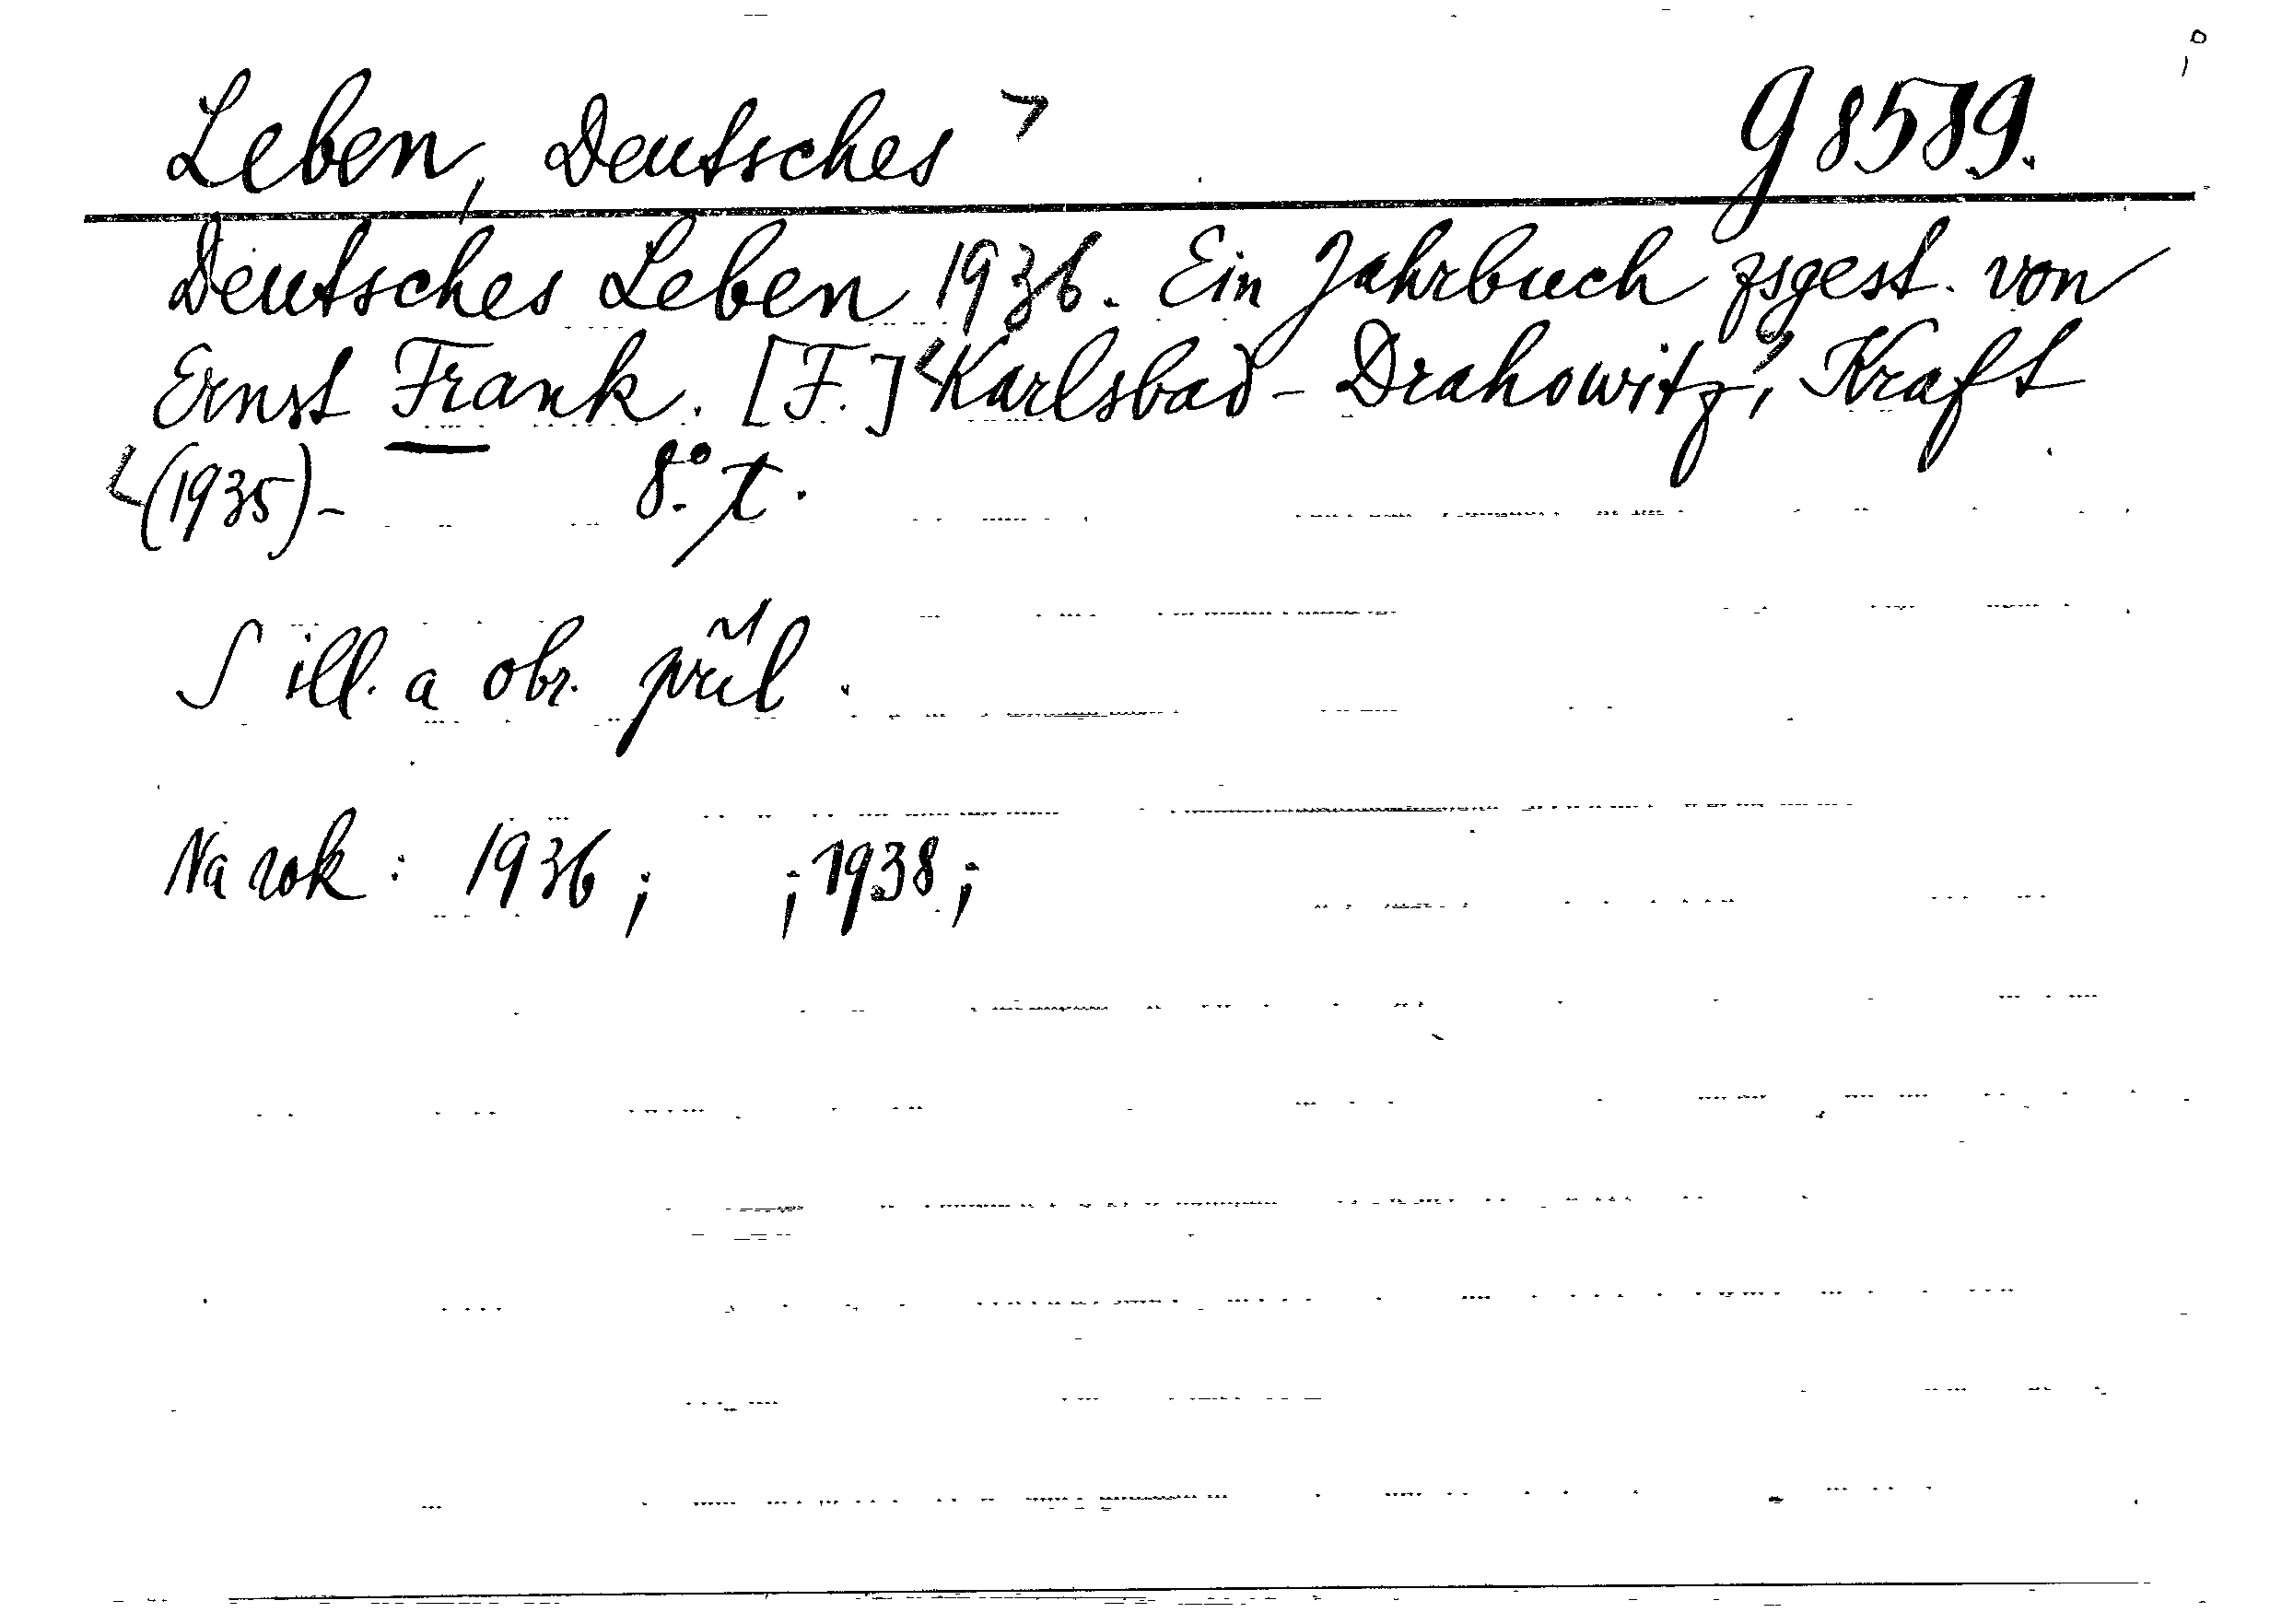 Leben, Deutsches g 8589.
Deutsches Leben 1936. Ein Jahrbuch zsgest. von
Ernst Frank. [F.] Karlsbad - Drahowitz, Kraft
(1935)- 8.° t.
S ill. a obr. příl.
Na rok: 1936; ; 1938;